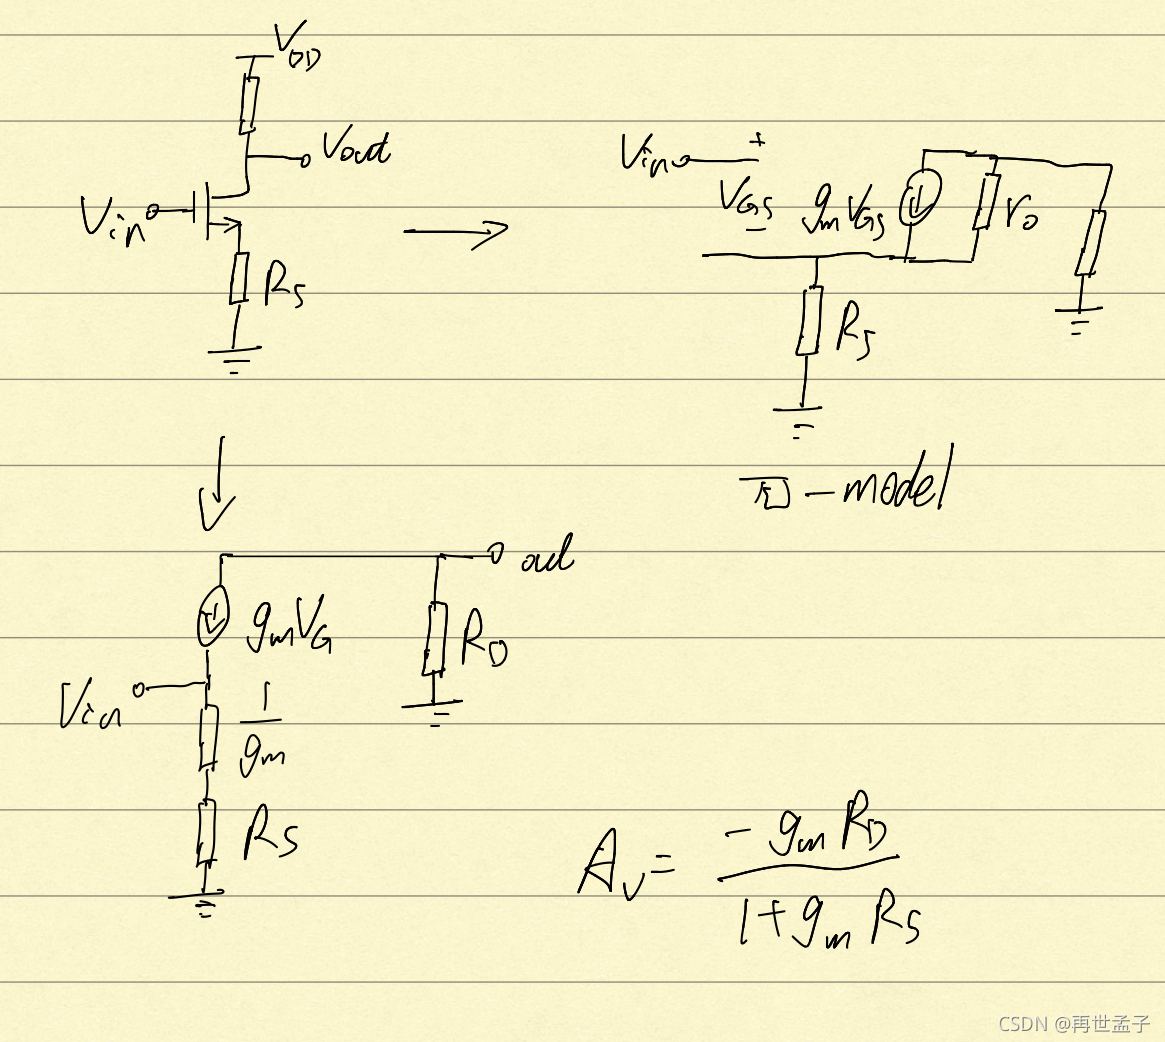 V_DD
Vout
Vin
R_S
Vin +
V_GS
−
g_m V_GS
r_o
R_S
π - model
out
g_m V_G
R_D
Vin
1/g_m
R_S
A_v = -g_m R_D / 1+g_m R_S
CSDN @再世孟子